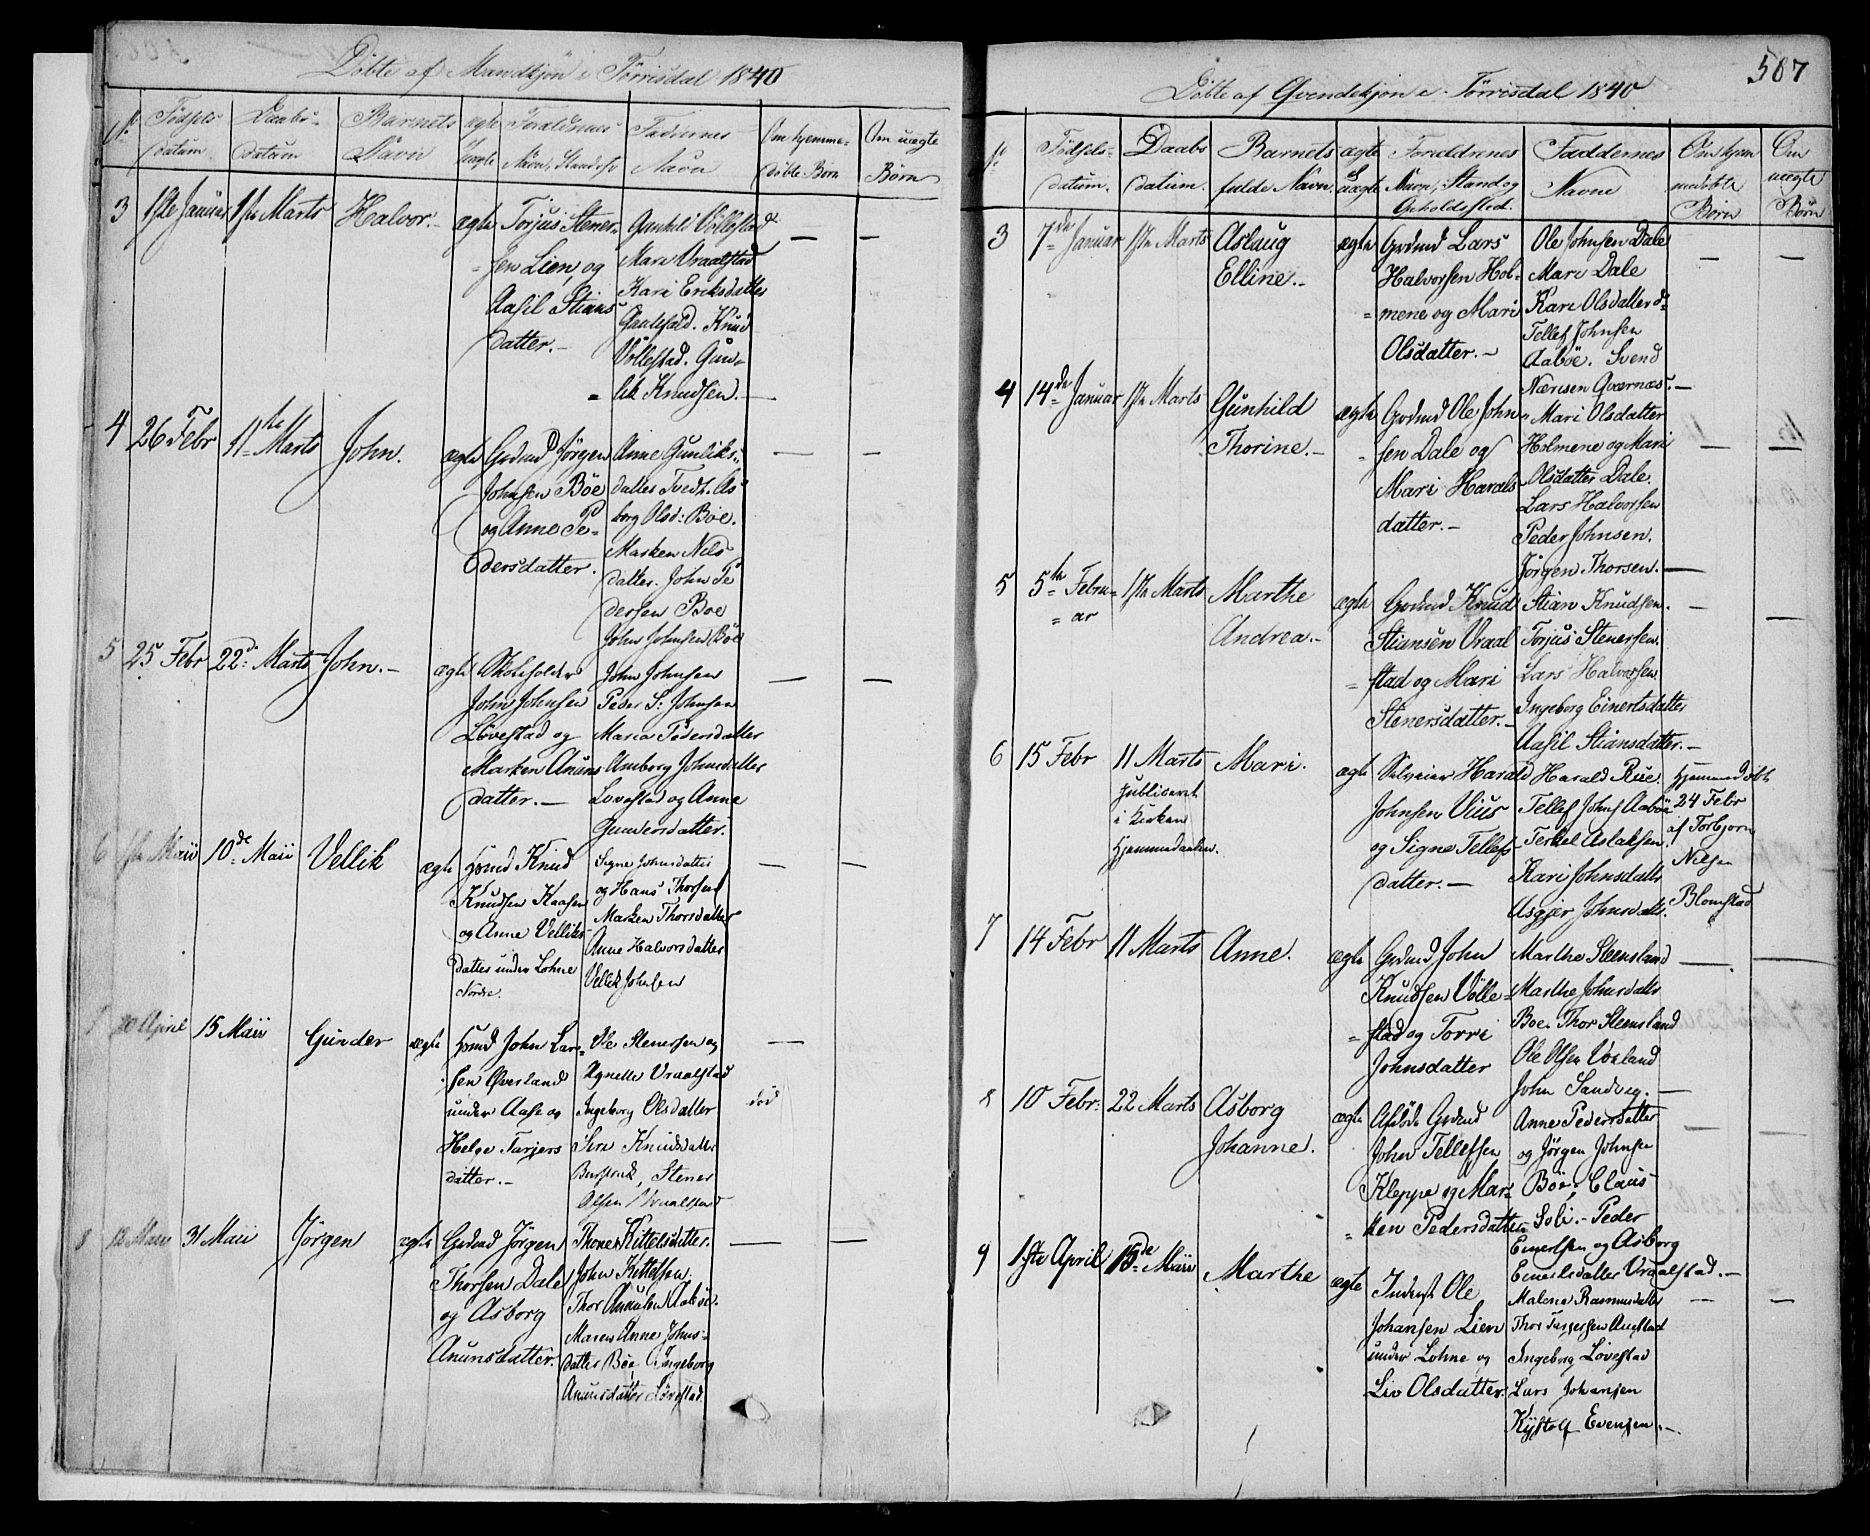 Döbte af Mandkjön i Törrisdal 1840
No Födsels datum
Daabs- datum
Barnets Navn
ægte uægte
Forældrenes Navn, Stand &
Faddernes Navn
Om hjemme-
döbte Börn
Om uægte
Börn
3 1ste Januar 1ste Marts Halvor.- ægte
Torjus Stener-
sen Lien, og
Aasil Stians
datter.-
Gunhild Vollestad
Mari Vraalstad
Kari Eriksdatter
Knud
Vollestad. Gun-
lik Knudsen.
4 26 Febr 11te Marts John. ægte
Grdmd Jörgen
Johnsen Böe
og Anne Pe-
dersdatter.
Anne Gunliks-
datter Tvedt. As-
borg Olsd: Böe.
Marken Nils
datter. John Pe
dersen Boe
John Johnsen Böe
5 25 Febr 22de Marts John.- ægte
Skoleholder
John Johnsen
Lövestad og
Marken Anuns
datter.-
John Johnsen
Peder S: Johnsen
Maria Pedersdatter
Amborg Johnsdatter
Lovestad og Anne
Gundersdatter.
6 1ste Maii 10de Maii Vellik ægte
Hsmd Knud
Knudsen Kaasen
og Anne Velliks-
datter under Lohne
Nordre.
Signe Johnsdatter
og Hans Thorsen
Marken Thorsdatter
Anne Halvorsdatter
Vellik Johnsen
7 20 April 15 Maii Gunder ægte
Hsmd John Lar-
sen Överland
under Aase og
Helge Tarjers
datter.-
Ole Stenersen og
Agnette Vraalstad
Ingeborg Olsdatter
Siri Knudsdatter
Stener
Olsen Vraalstad
död
8 12 Marts 31 Maii Jörgen ægte
Grdmd Jörgen
Thorsen Dale
og Asborg
Anunsdatter.
Thone Kittelsdatter.
John Kittelsen.
Thor Anunsen Aaböe.
Maren Anne Johns-
datter Böe. Ingeborg
Anunsdatter Lövestad
507
Döbte af Qvindekjön i Törrisdal 1840
No Födsels- datum.
Daabs datum.
Barnets fulde Navn.
ægte & uægte
Forældrenes Navn, Stand og Opholdssted.
Faddernes Navne
Om hjem medöbte Börn
Om uægte Börn
3 7de Januar 1ste Marts Aslaug
Elline.- ægte
Grdmd Lars
Halvorsen Hol-
mene og Mari
Olsdatter.-
Ole Johnsen Dale
Mari Dale
Kari Olsdatter
Tellef Johnsen
Aaböe. Svend
Nærisen Qværnæs.-
4 14de Januar 1ste Marts Gunhild
Thorine.- ægte
Grdmd Ole John
sen Dale og
Mari Harals
datter.-
Mari Olsdatter
Holmene og Mari
Olsdatter Dale.
Lars Halvorsen
Peder Johnsen.
Jörgen Thorsen.
5 5te Febru-
ar 1ste Marts Marthe
Andrea.- ægte
Grdmd Knud
Stiansen Vraal
stad og Mari
Stenersdatter.-
Stian Knudsen.
Torjus Stenersen.
Lars Halvorsen
Ingeborg Einertsdatter
Aasil Stiansdatter.-
6 15 Febr 11 Marts
publiceret
i Kirken
Hjemmedaaben.
Mari. ægte
Selveier Harald
Johnsen Vius
og Signe Tellefs
datter.-
Harald Rue
Tellef Johns Aaböe
Terkel Aslaksen
Kari Johnsdattr
Asgjer Johnsdattr.
Hjemmedöbt
24 Febr
af Torbjorn
Nilsen
Blomstad
7 14 Febr 11 Marts Anne. ægte
Grdmd John
Knudsen Volle-
stad og Torri
Johnsdatter
Marthe Steensland
Marthe Johnsdattr
Boe. Thor Steensland
Ole Olsen Vraland
John Sandvig.
8 10 Febr: 22 Marts Asborg
Johanne. ægte
Afdöde Grdmd
John Tellefsen
Kleppe og Mar-
ken Pedersdatter
Anne Pedersdatter
og Jörgen Johnsen
Böe. Claus
Soli.- Peder
Einertsen og Asborg
Einersdatter Vraalstad.-
9 1ste April 15de Maii Marthe ægte
Inderst Ole
Johansen Lien
under Lohne og
Liv Olsdatter.
Malene Rasmusdatter
Thor Targersen Austad
Ingeborg Lovestad
Lars Johansen
Kystolf Evensen.-